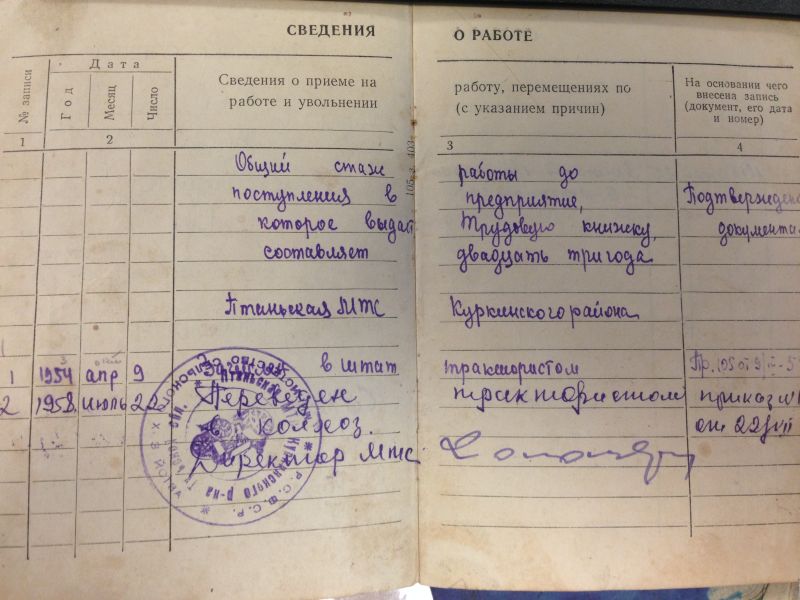 СВЕДЕНИЯ О РАБОТЕ
№ записи
Дата
Год
Месяц
Число
Сведения о приеме на работу, перемещениях по
работе и увольнении (с указанием причин)
На основании чего
внесена запись
(документ, его дата
и номер)
1 2 3 4
105 з. 403
Общий стаж работы до
поступления в предприятие,
которое выдает Трудовую книжку,
составляет двадцать три года
Подтвержден
документа
Птаньская МТС Куркинского района
1 1954 апр 9 в штат трактористом Пр. 105 от 9/
2 1958 июль 22 Переведен трактористом приказ №
колхоз. от 22/VII
Директор МТС
Р.С.Ф.С.Р.